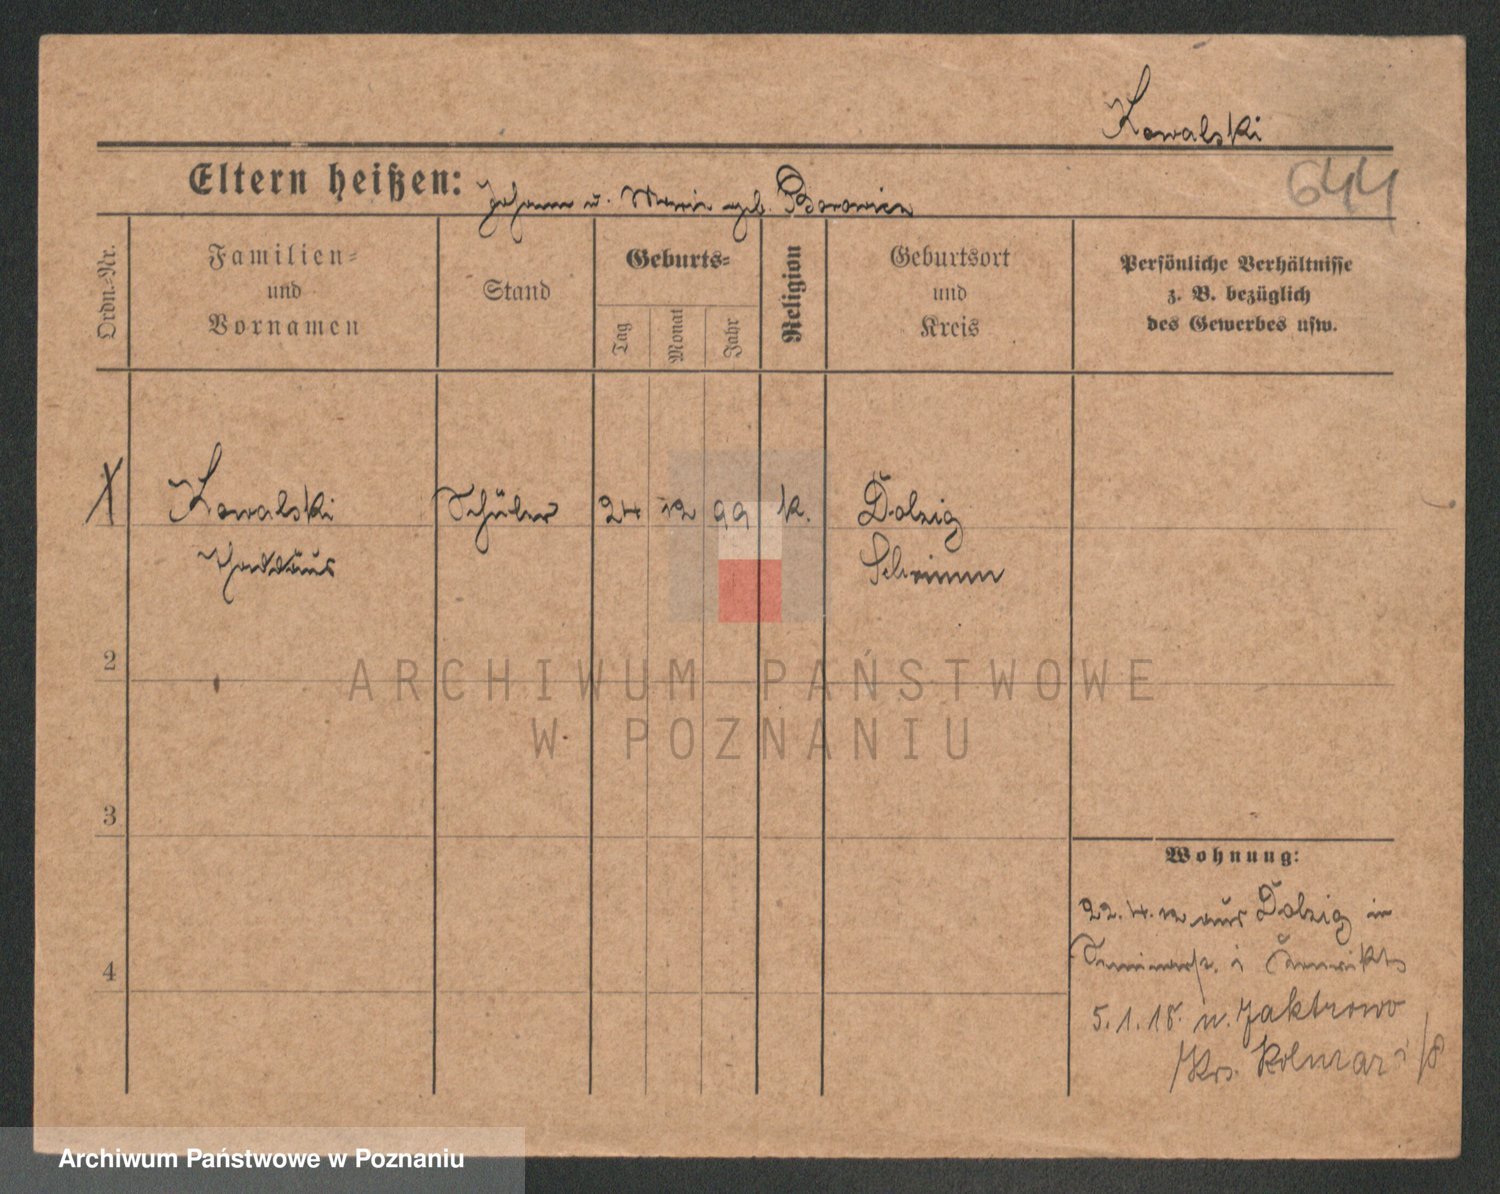 Kowalski
Eltern heißen: Johann u. Marie geb.
644
Ordn.-Nr.
Familien-
und
Vornamen
Stand
Geburts-
Tag
Monat
Jahr
Religion
Geburtsort
und
Kreis
Persönliche Verhältnisse
z. B. bezüglich
des Gewerbes usw.
Kowalski Schüler 24 12 99 k. Dolzig
Thaddäus Schrimm
2
3
4
Wohnung:
22.4.12 aus Dolzig in
5.1.18. n. Jaktrowo
Krs. Kolmar i/
ARCHIWUM PAŃSTWOWE
W POZNANIU
Archiwum Państwowe w Poznaniu